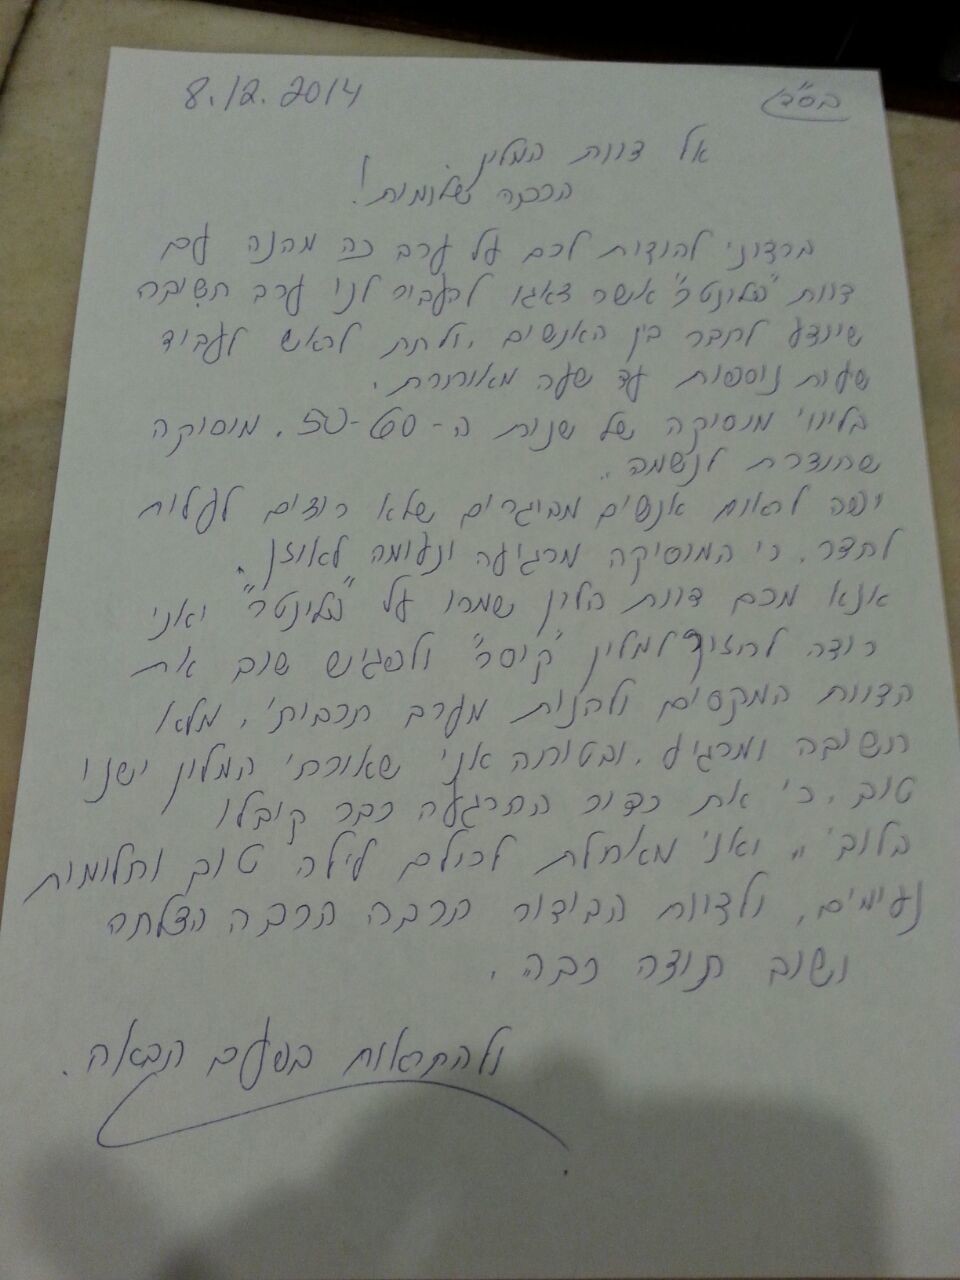 בס"ד 8.12.2014
אל צוות המלון
הרבה שלומות!
ברצוני להודות לכם על ערב כה מהנה עם
צוות אשר דאגו להעביר לנו ערב חשיבה
שיודע לחבר בין האנשים, ולתת לראש לעבוד
שעות נוספות עד שעה מאוחרת.
בליווי מוסיקה של שנות ה-50-60. מוסיקה
שחודרת לנשמה.
יפה לראות אנשים מבוגרים שלא רוצים לעלות
לחדר. כי המוסיקה מרגיעה ונעימה לאוזן.
אנא מכם צוות מלון שמרו על ואני
רוצה לחזור למלון "קיסר" ולפגוש שוב את
הצוות המקסים ולהנות מערב תרבותי, מלא
חשיבה ומרגיע. ובטוחה אני שאורחי המלון ישנו
טוב, כי את כדור ההרגעה כבר קיבלו
בלובי ,, ואני מאחלת לכולם לילה טוב וחלומות
נעימים, ולצוות הבידור הרבה הרבה הצלחה
ושוב תודה רבה,,.
ולהתראות בפעם הבאה.